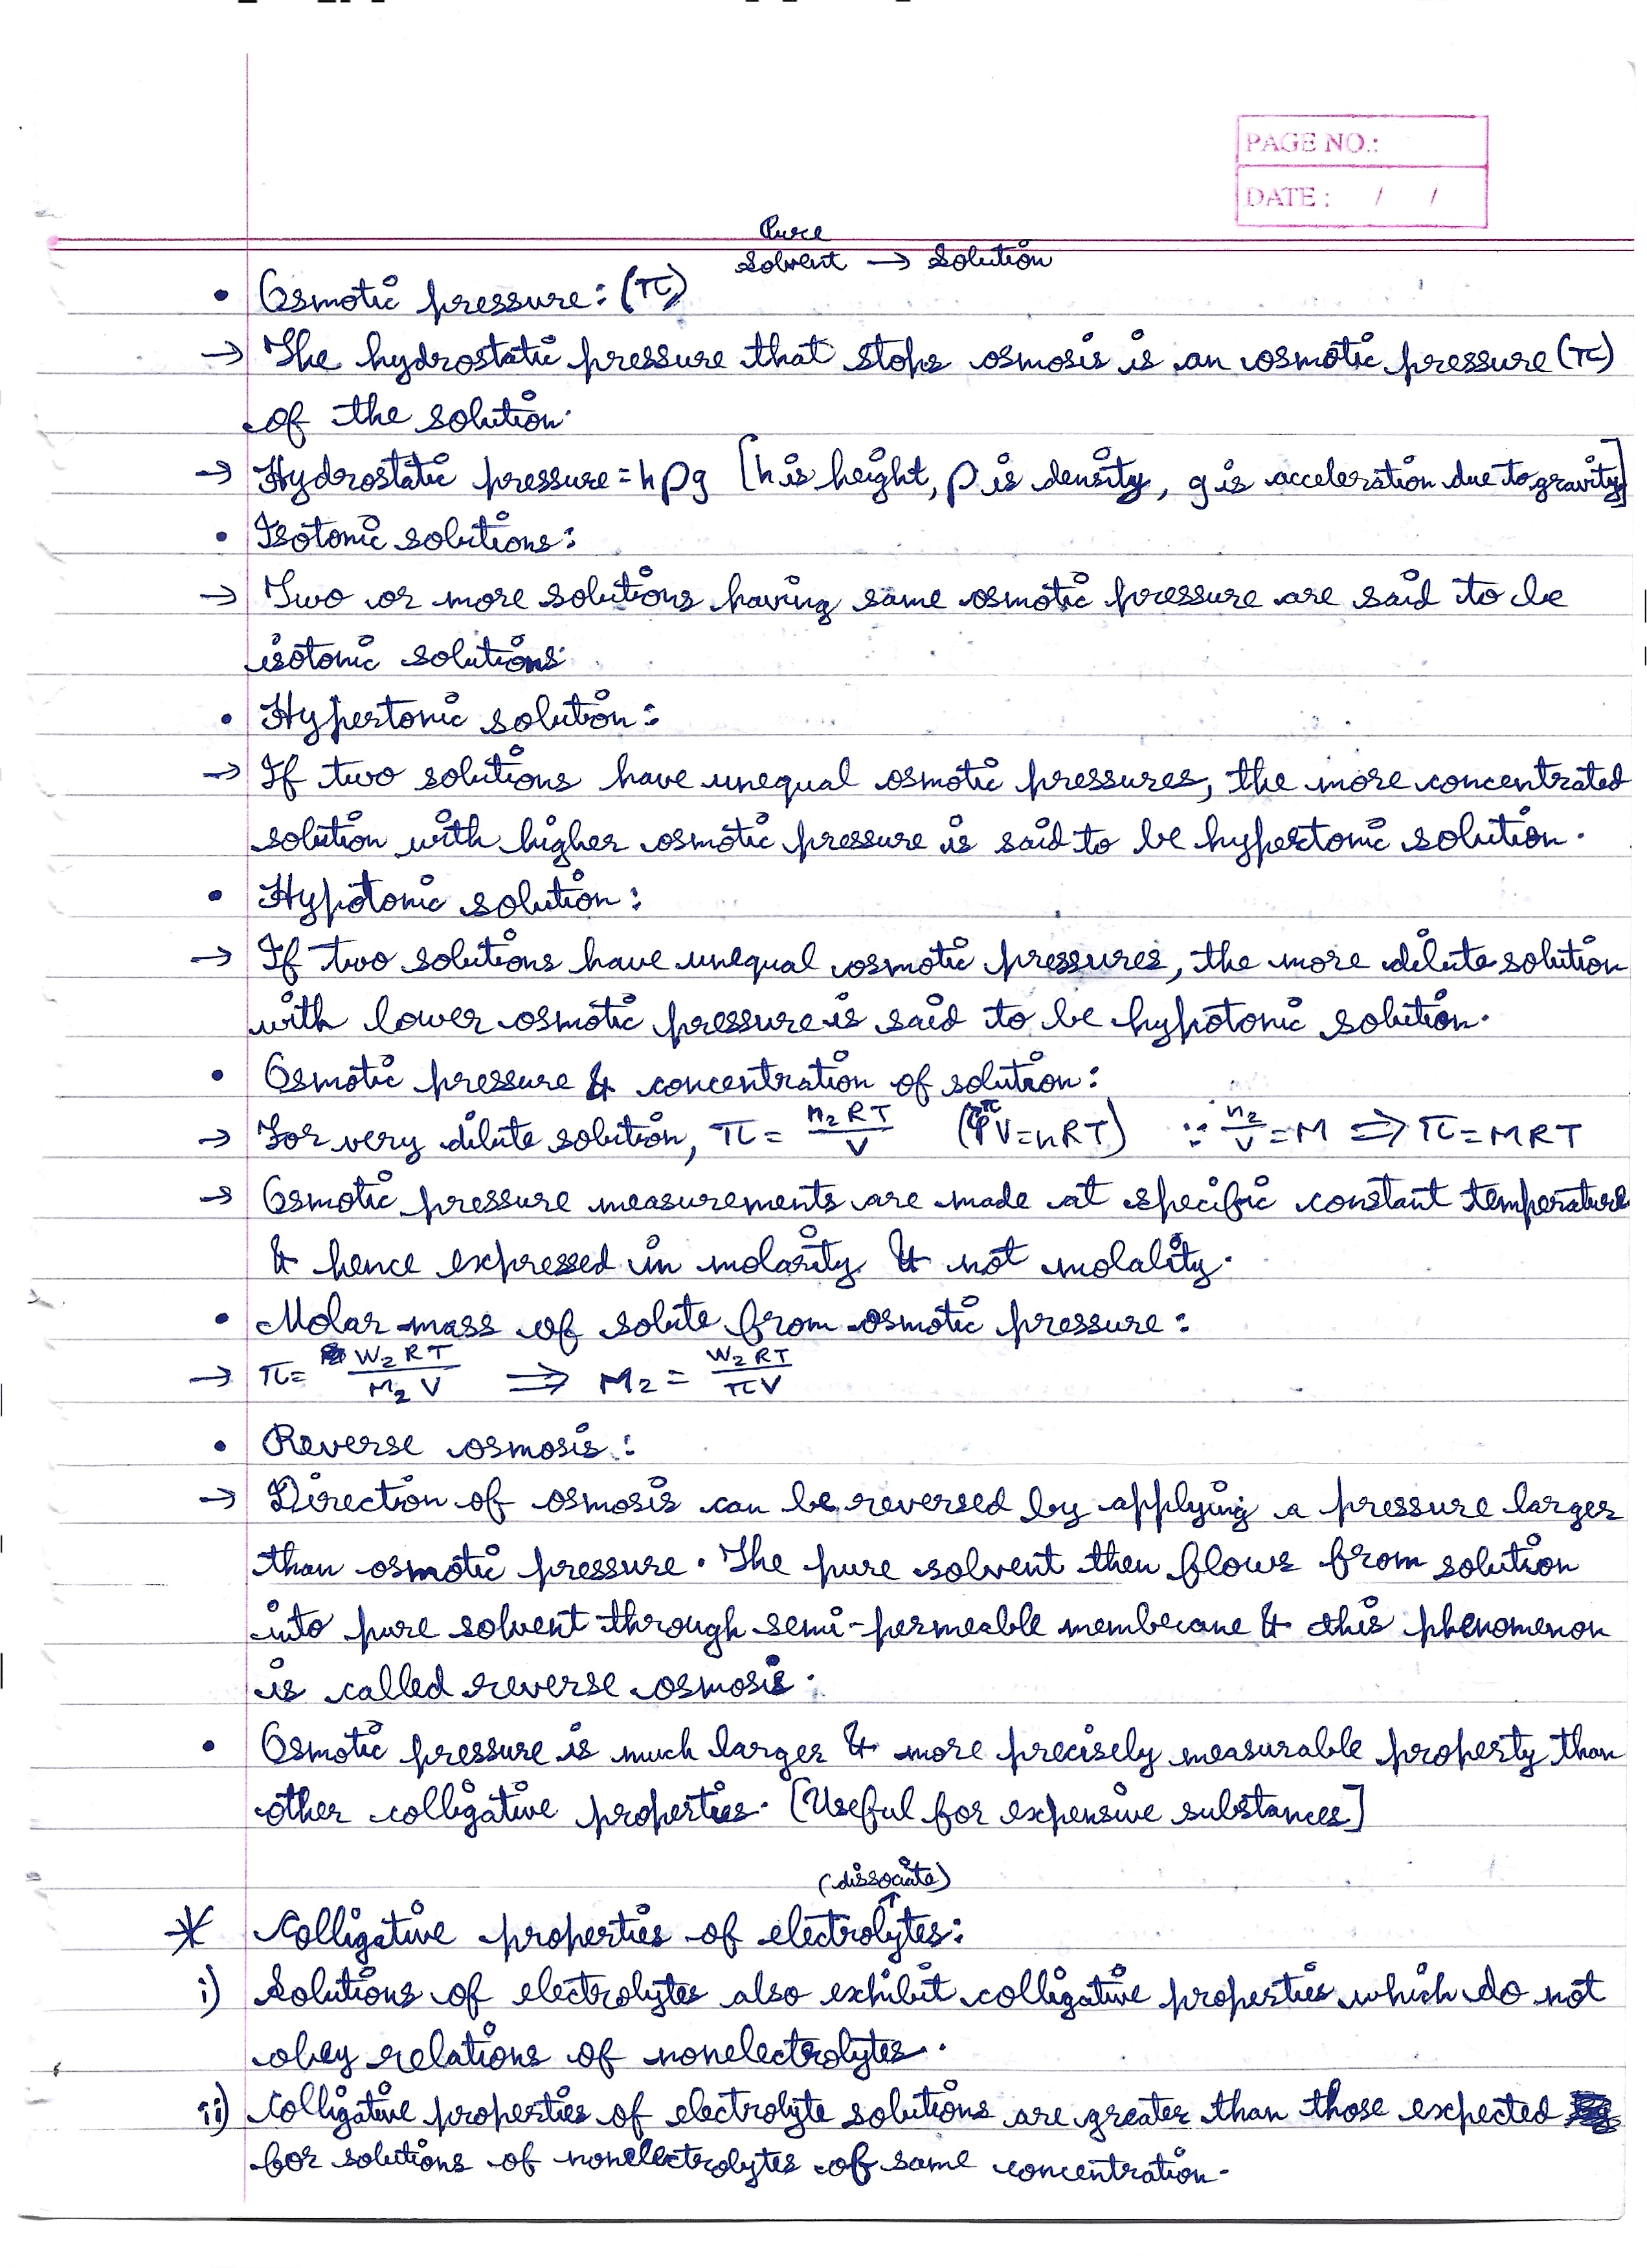 PAGE NO.:
DATE : / /
Pure
Solvent → Solution
• Osmotic pressure: (π)
→ The hydrostatic pressure that stops osmosis is an osmotic pressure (π)
of the solution.
→ Hydrostatic pressure = hρg [h is height, ρ is density, g is acceleration due to gravity]
• Isotonic solutions:
→ Two or more solutions having same osmotic pressure are said to be
isotonic solutions.
• Hypertonic solution:
→ If two solutions have unequal osmotic pressures, the more concentrated
solution with higher osmotic pressure is said to be hypertonic solution.
• Hypotonic solution:
→ If two solutions have unequal osmotic pressures, the more dilute solution
with lower osmotic pressure is said to be hypotonic solution.
• Osmotic pressure & concentration of solution:
→ For very dilute solution, π = n₂RT/V (πV = nRT) ∵ n₂/V = M ⇒ π = MRT
→ Osmotic pressure measurements are made at specific constant temperature
& hence expressed in molarity & not molality.
• Molar mass of solute from osmotic pressure:
→ π = W₂RT/M₂V ⇒ M₂ = W₂RT/πV
• Reverse osmosis:
→ Direction of osmosis can be reversed by applying a pressure larger
than osmotic pressure. The pure solvent then flows from solution
into pure solvent through semi-permeable membrane & this phenomenon
is called reverse osmosis.
• Osmotic pressure is much larger & more precisely measurable property than
other colligative properties. [Useful for expensive substances]
(dissociate)
↑
* Colligative properties of electrolytes:
i) Solutions of electrolytes also exhibit colligative properties which do not
obey relations of nonelectrolytes.
ii) Colligative properties of electrolyte solutions are greater than those expected
for solutions of nonelectrolytes of same concentration.